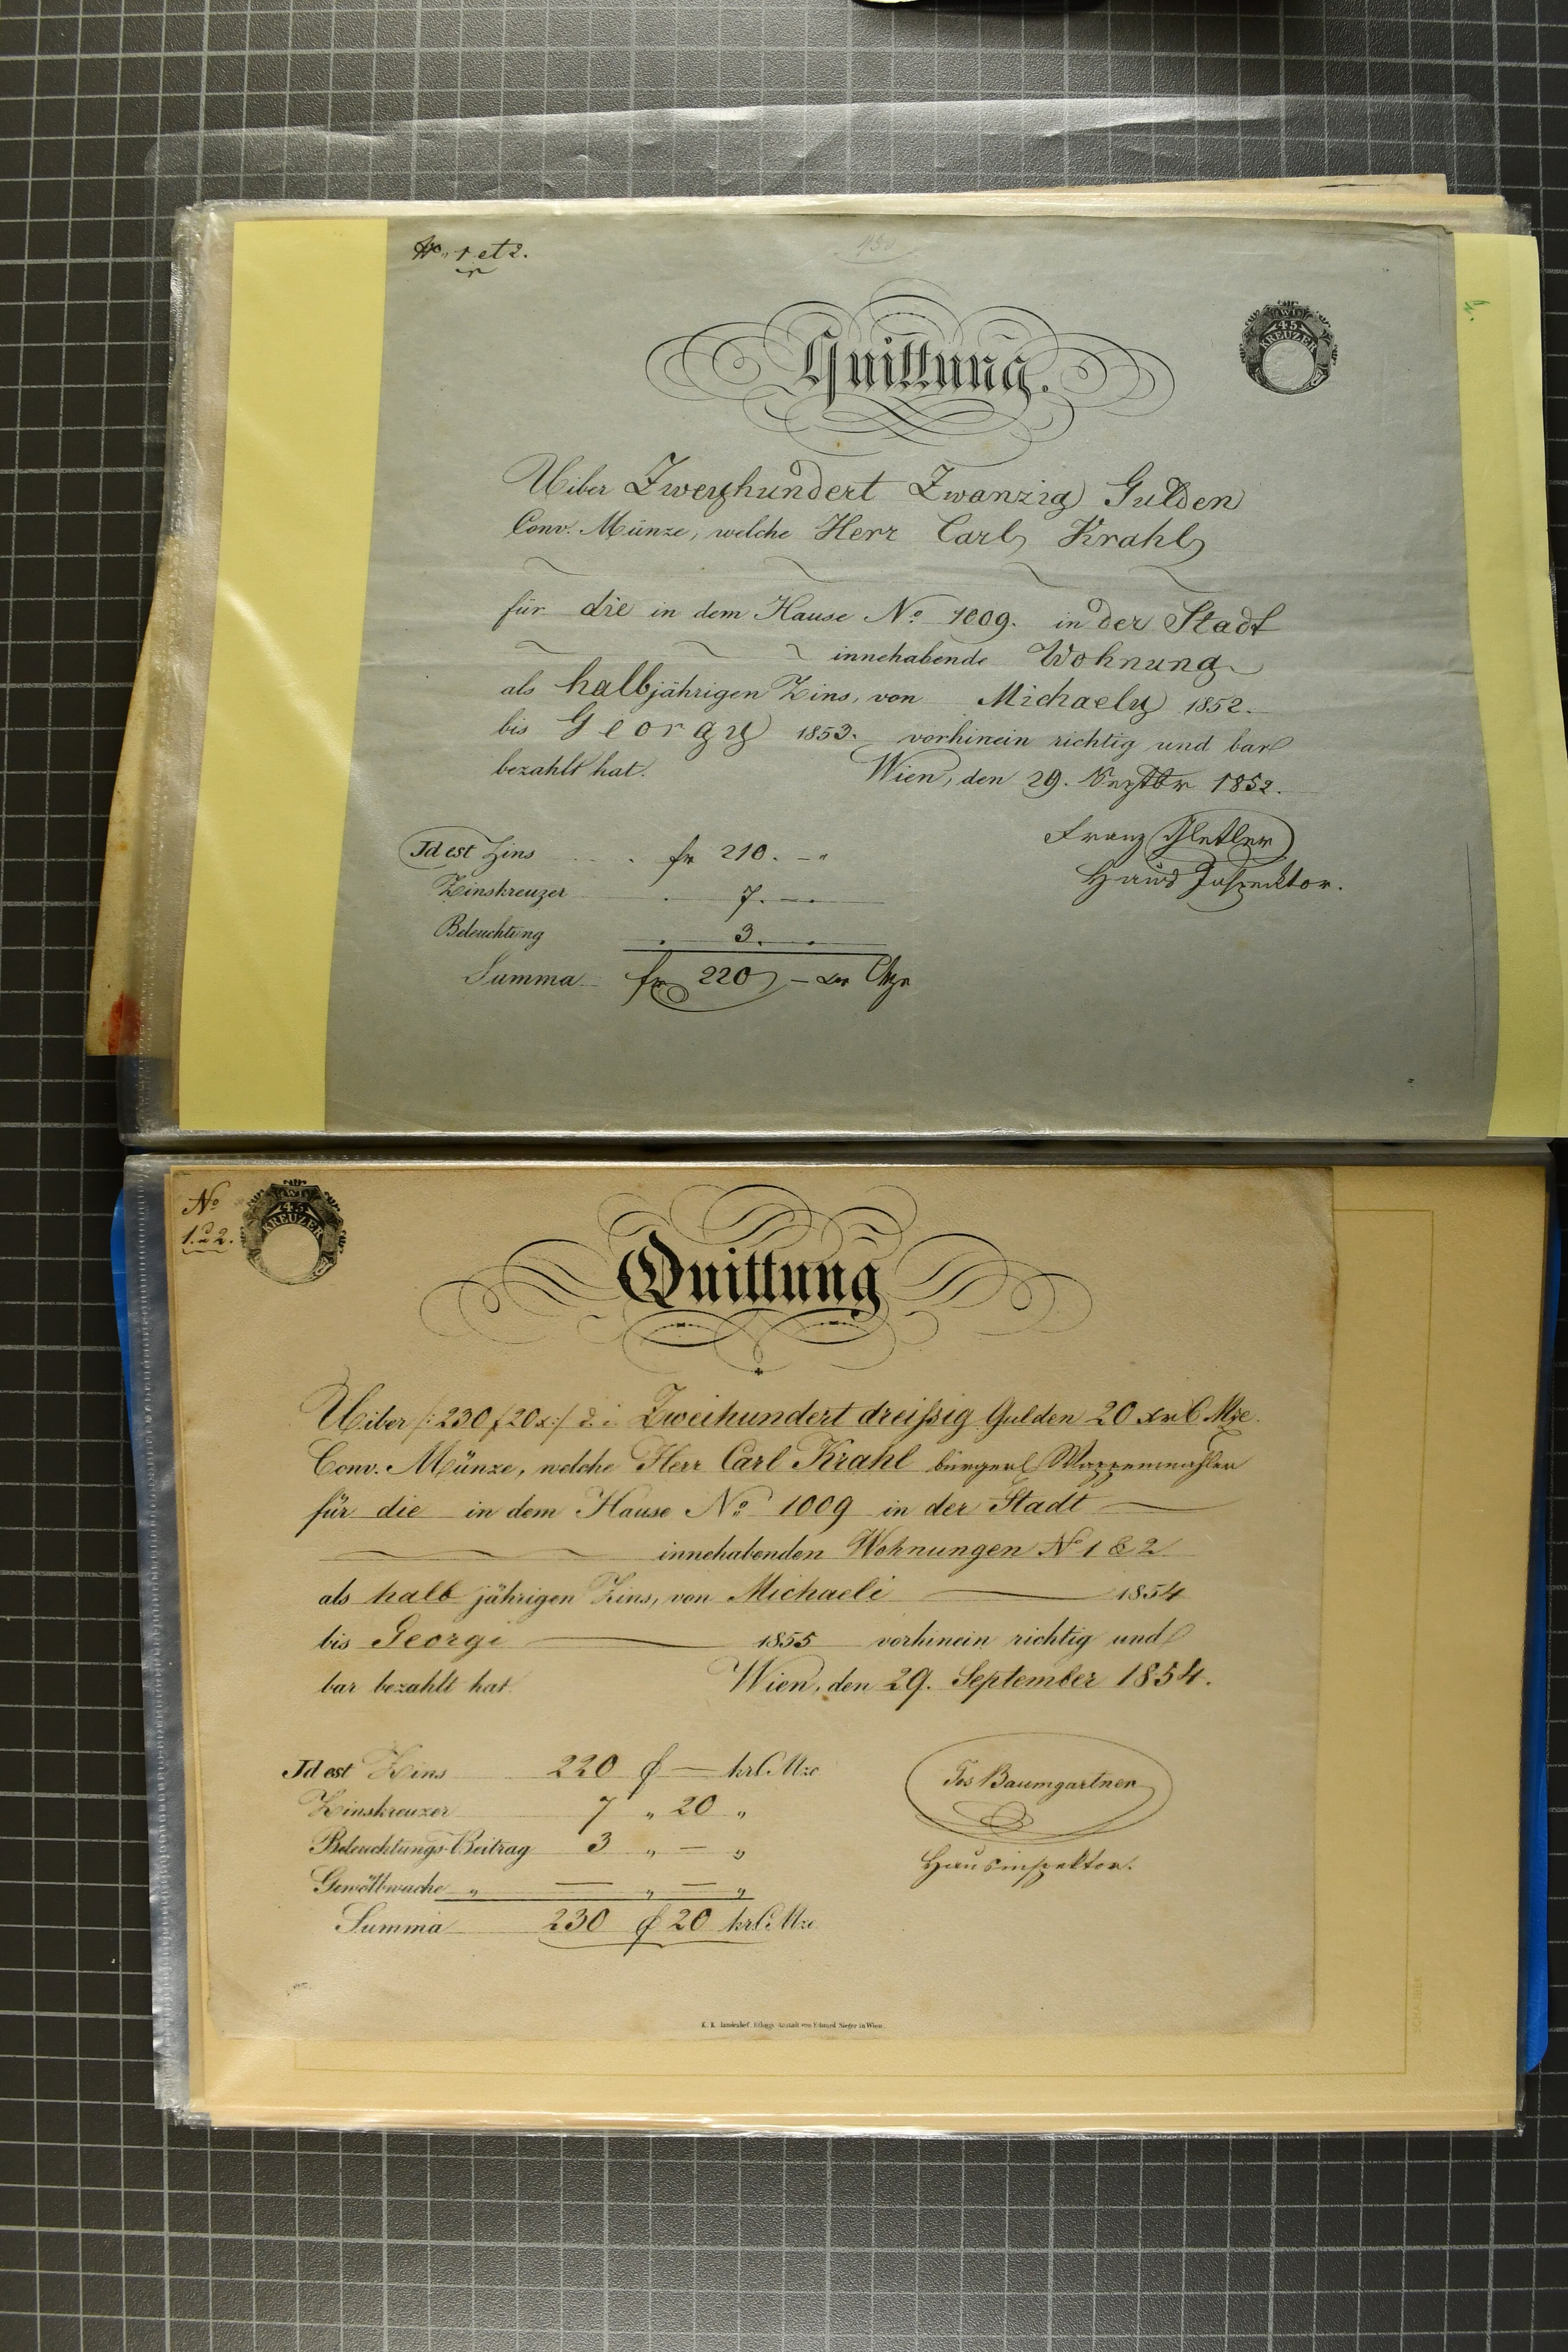 No. 1 et 2.
450
WIEN
45
KREUZER
Quittung.
Uiber Zweyhundert Zwanzig Gulden
Conv. Münze, welche Herr Carl Krahl
für die in dem Hause No. 1009. in der Stadt
innehabende Wohnung
als halbjährigen Zins, von Michaely 1852.
bis Georgy 1853. vorhinein richtig und bar
bezahlt hat. Wien, den 29. Septbr 1852.
Franz
Haus Inspecktor.
Id est Zins fr 210. - "
Zinskreuzer 7. -
Beleuchtung 3.
Summa fr 220 - xr CMze
No
1. & 2.
45
KREUZER
Quittung
Uiber /: 230 f 20 x :/ d. i. Zweihundert dreißig Gulden 20 xr C Mze.
Conv. Münze, welche Herr Carl Krahl bürgerl Wappenmahler
für die in dem Hause No. 1009 in der Stadt
innehabenden Wohnungen No 1 & 2
als halb jährigen Zins, von Michaeli 1854
bis Georgi 1855 vorhinein richtig und
bar bezahlt hat. Wien, den 29. September 1854.
Id est Zins 220 f — kr C. Mze
Zinskreuzer 7 " 20 "
Beleuchtungs-Beitrag 3 " — "
Gewölbwache " — " — "
Summa 230 f 20 kr C. Mze
Jos Baumgartner
Hausinspektor.
K. K. landesbef. Lithogr. Anstalt von Eduard Sieger in Wien.